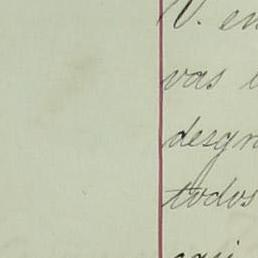 V. en
vas
desgn
todos